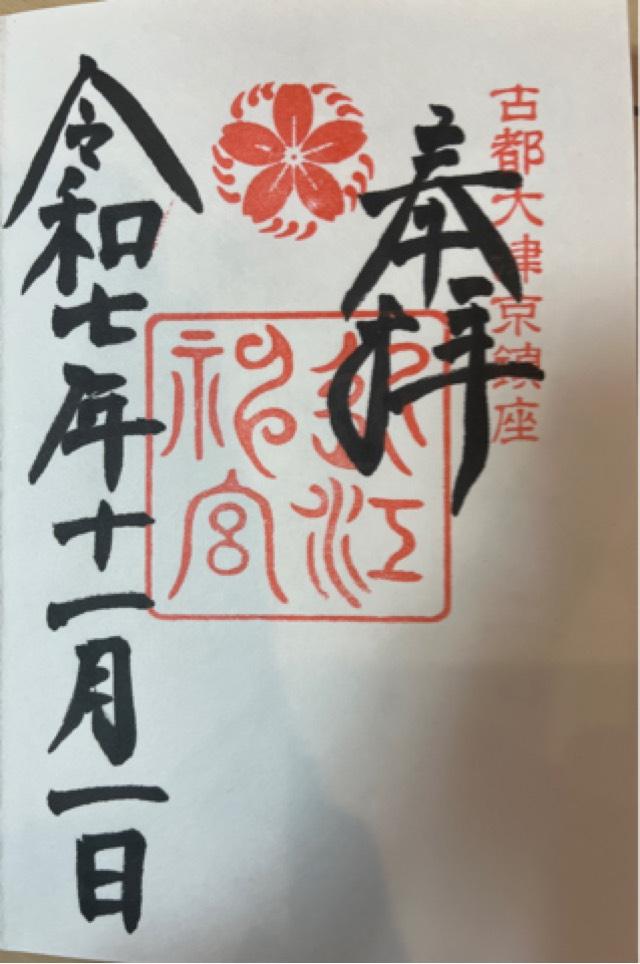 古都大津京鎮座
奉拝
近江
神宮
令和七年十一月一日